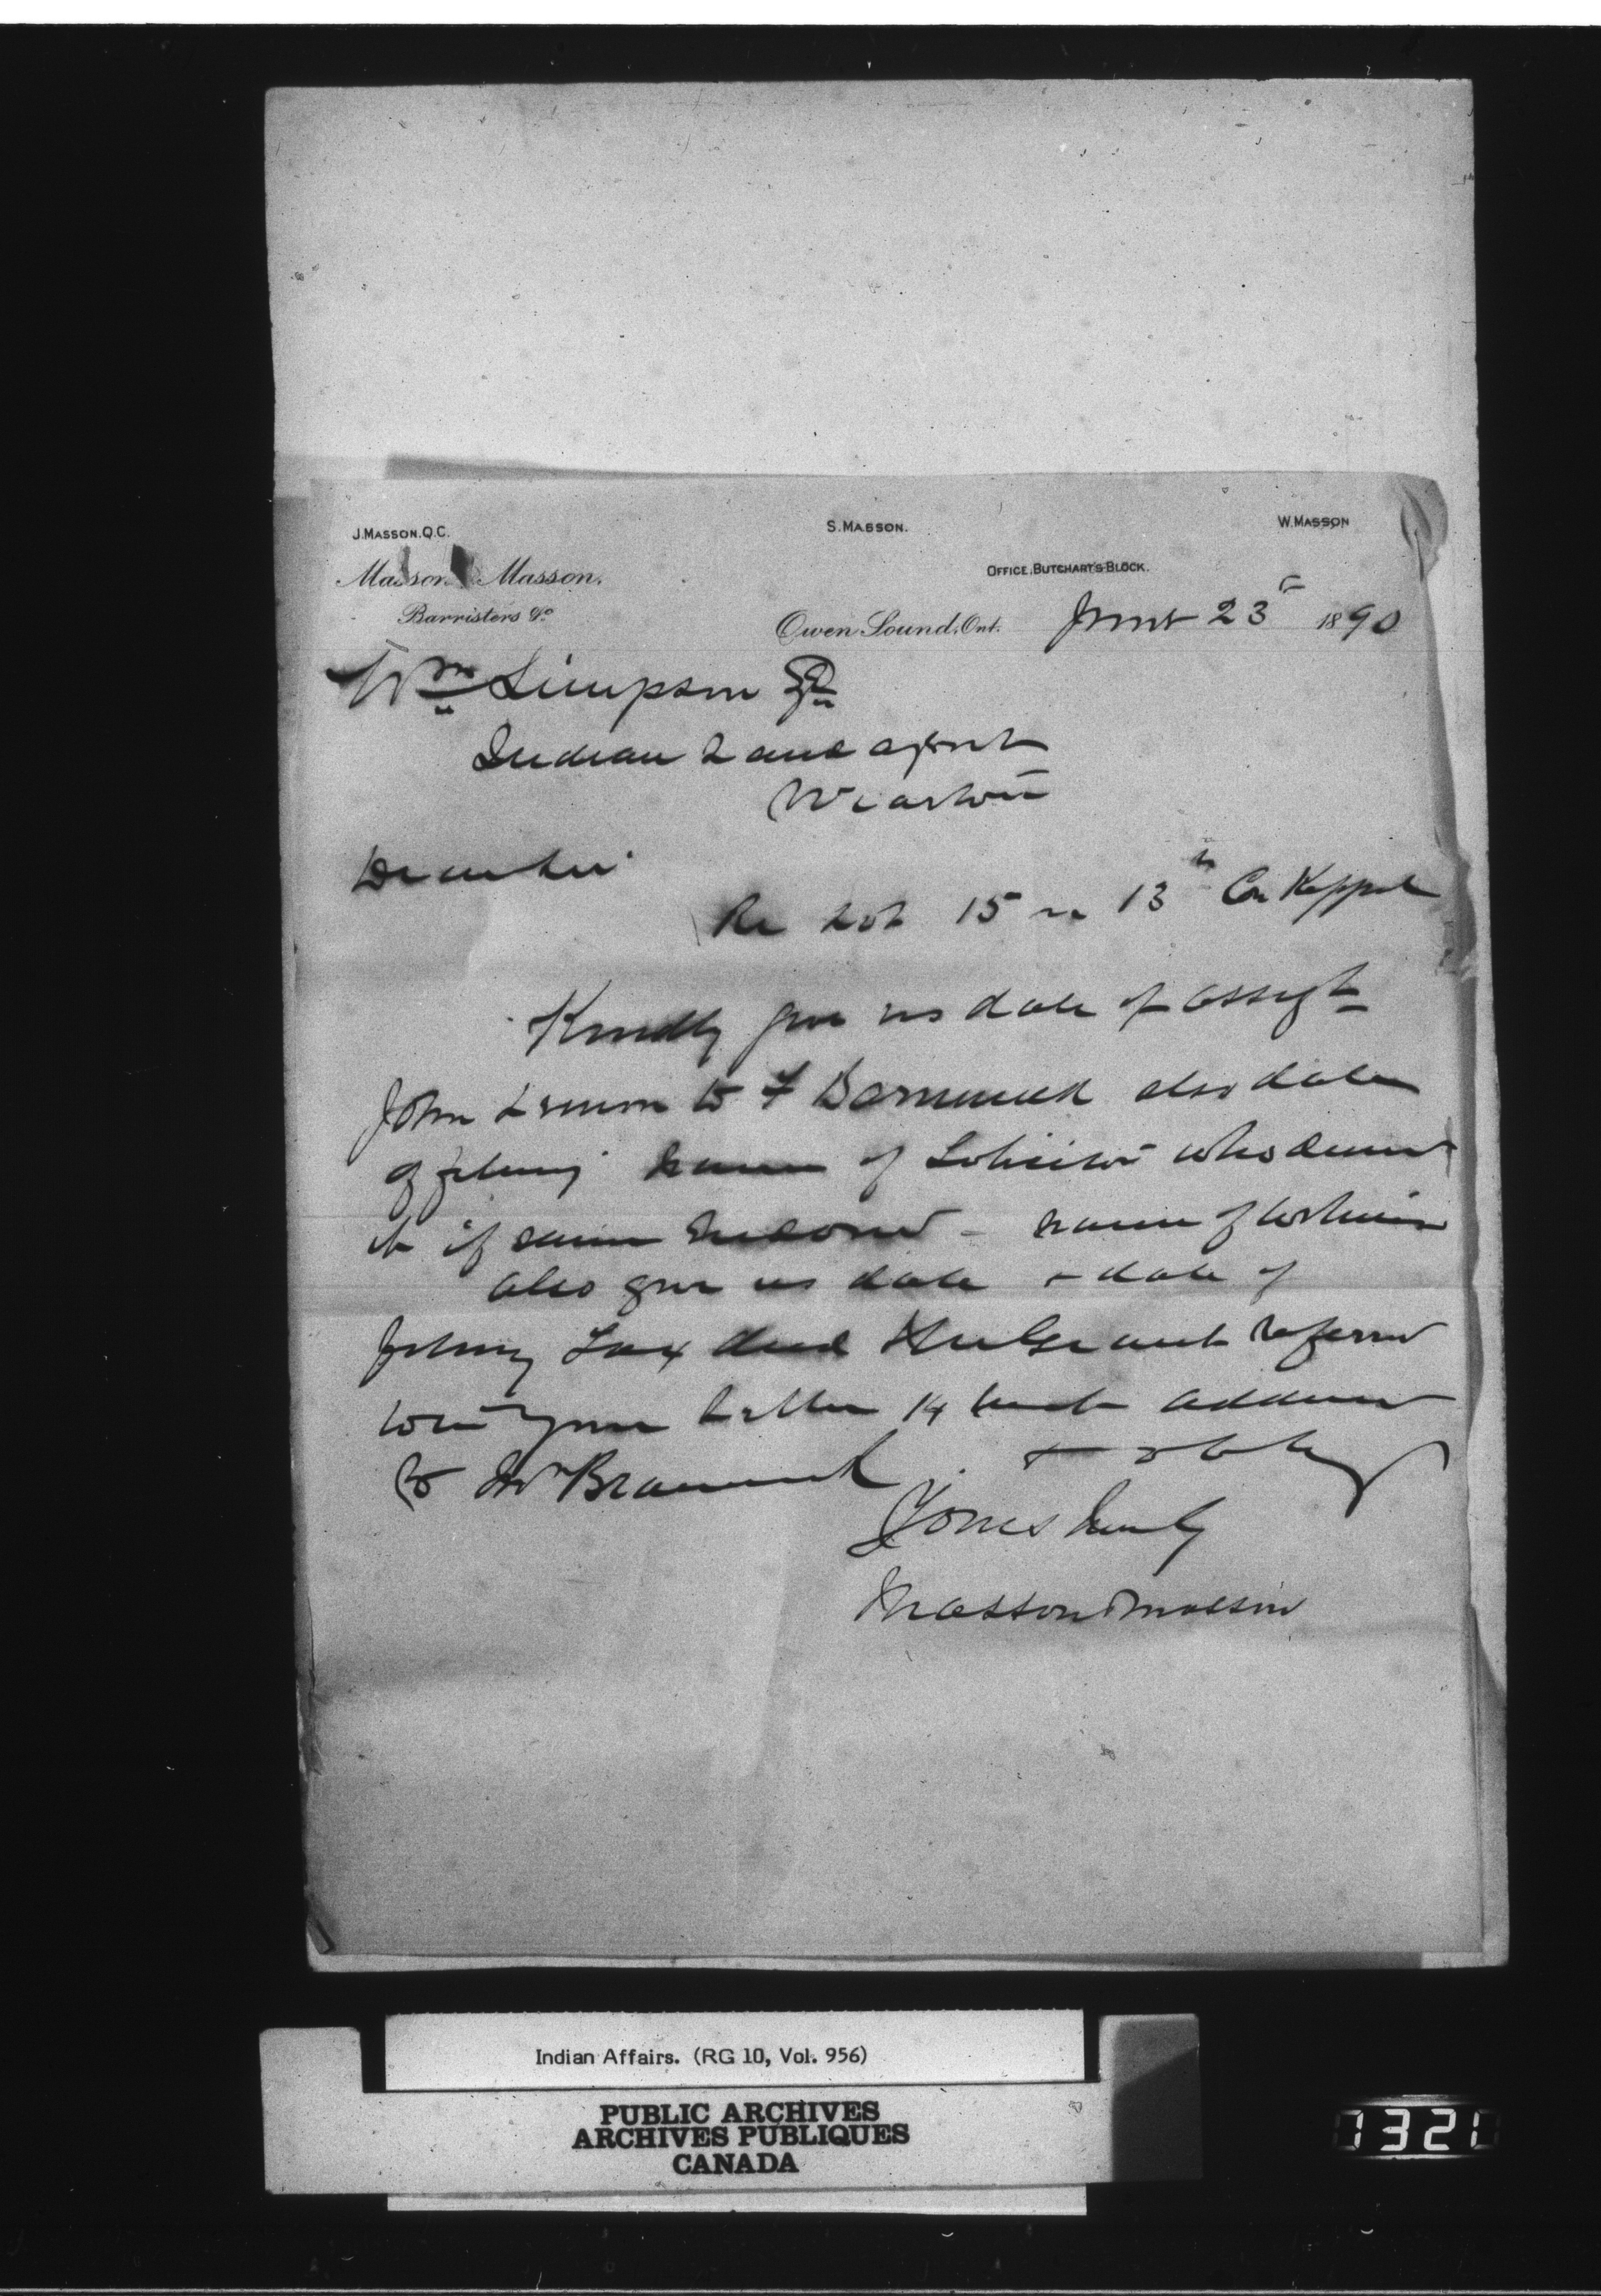 J. MASSON. Q.C. S. MASSON. W. MASSON
Masson Masson.
OFFICE, BUTCHART'S BLOCK.
Barristers &c.
Owen Sound, Ont. 23 1890
Wm Simpson Esq
Indian Land agent
Wiarton
Dear Sir
Re Lot 15 in 13th Con Keppel
Kindly give us date of assigt
John to F also date
of filing name of Solicitor who
it if same - name of witness
also give us date & date of
filing Tax deed referred
to in your letter 14 
to Mr & oblige
Yours truly
Masson & Masson
Indian Affairs. (RG 10, Vol. 956)
PUBLIC ARCHIVES
ARCHIVES PUBLIQUES
CANADA
1321